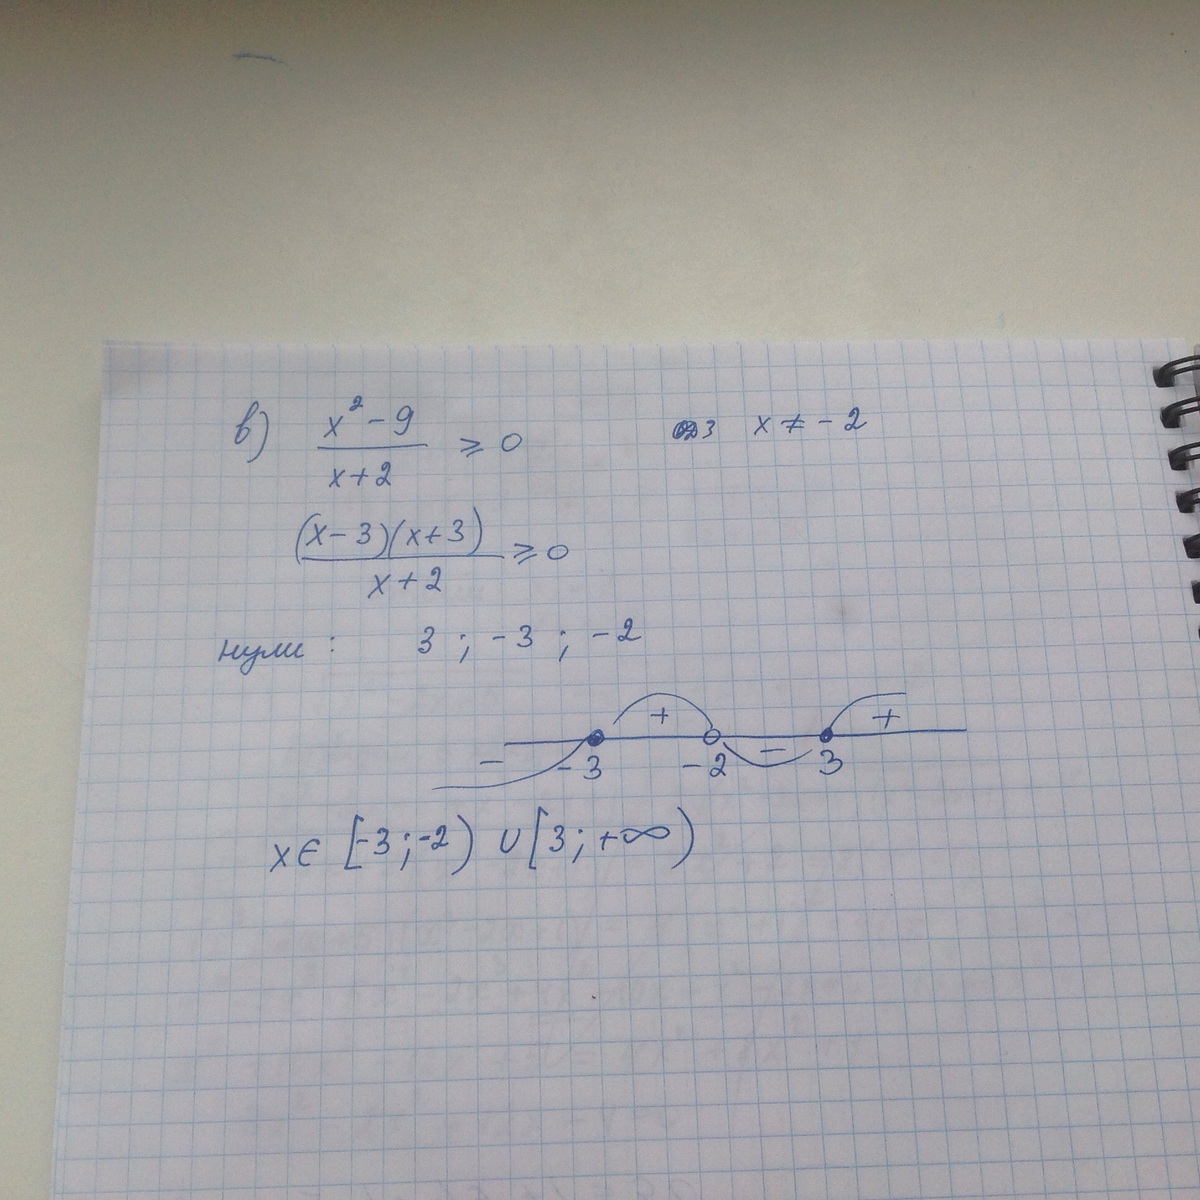 в) x² - 9 / x + 2 ⩾ 0 ОДЗ x ≠ - 2
(x - 3)(x + 3) / x + 2 ⩾ 0
нули : 3 ; -3 ; -2
+ +
- -3 -2 - 3
x ∈ [-3 ; -2) ∪ [3 ; +∞)